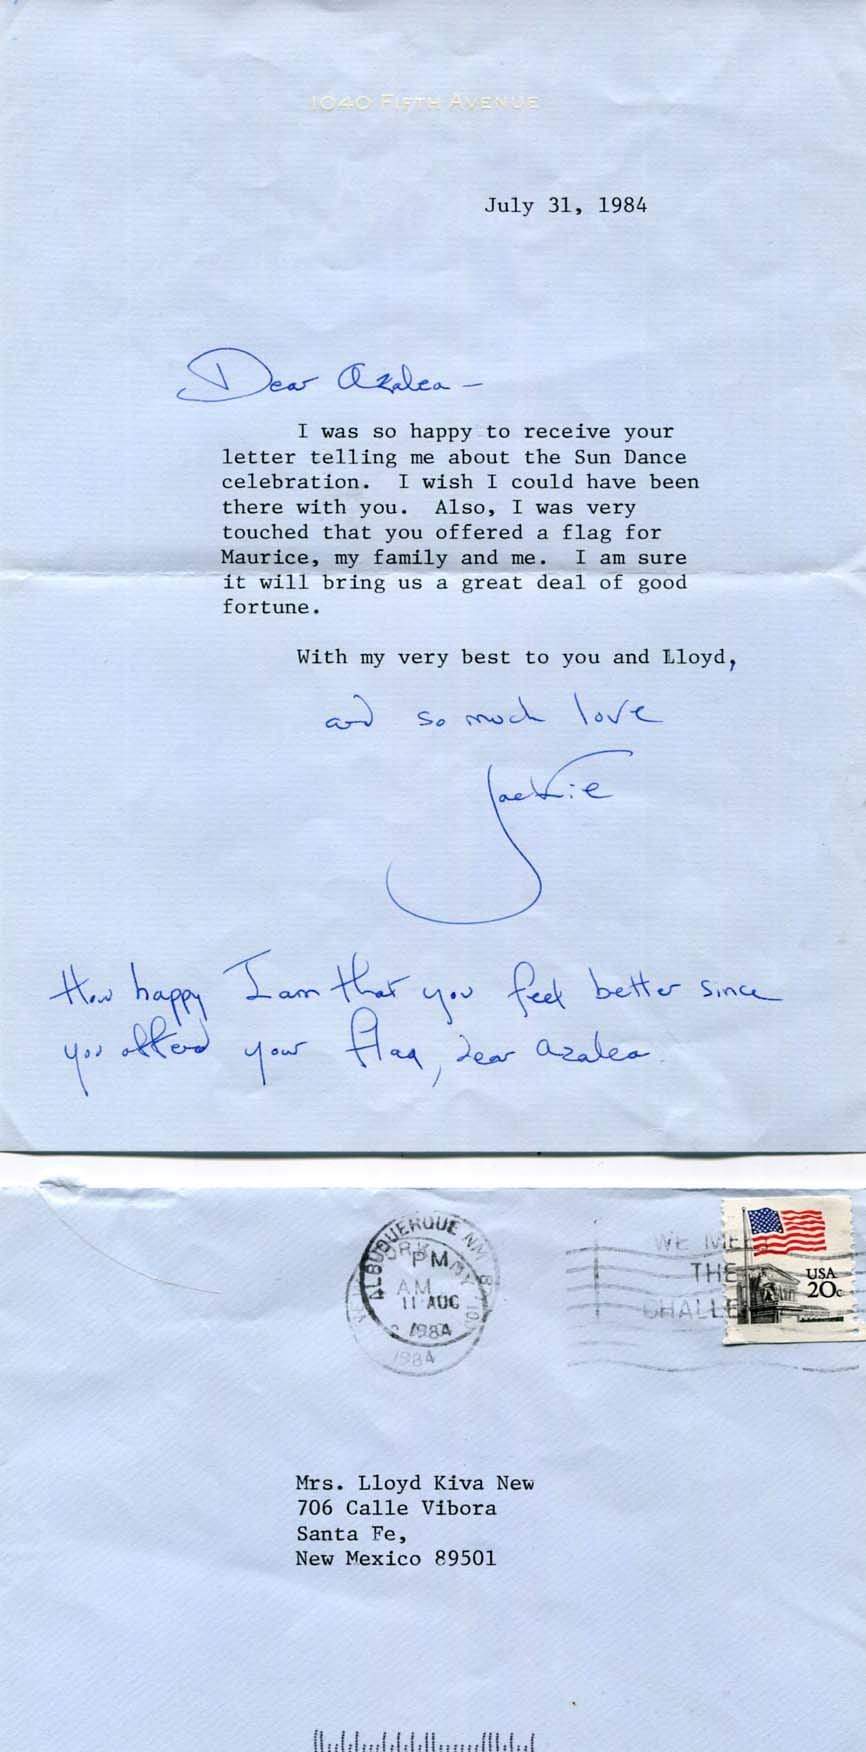 1040 FIFTH AVENUE
July 31, 1984
Dear Azalea –
I was so happy to receive your
letter telling me about the Sun Dance
celebration. I wish I could have been
there with you. Also, I was very
touched that you offered a flag for
Maurice, my family and me. I am sure
it will bring us a great deal of good
fortune.
With my very best to you and Lloyd,
and so much love
Jackie
How happy I am that you feel better since
you offered your flag, dear Azalea.
ALBUQUERQUE NM
PM
AM
11 AUG
1984
1984
WE MEE
THE
CHALLE
USA
20c
Mrs. Lloyd Kiva New
706 Calle Vibora
Santa Fe,
New Mexico 89501